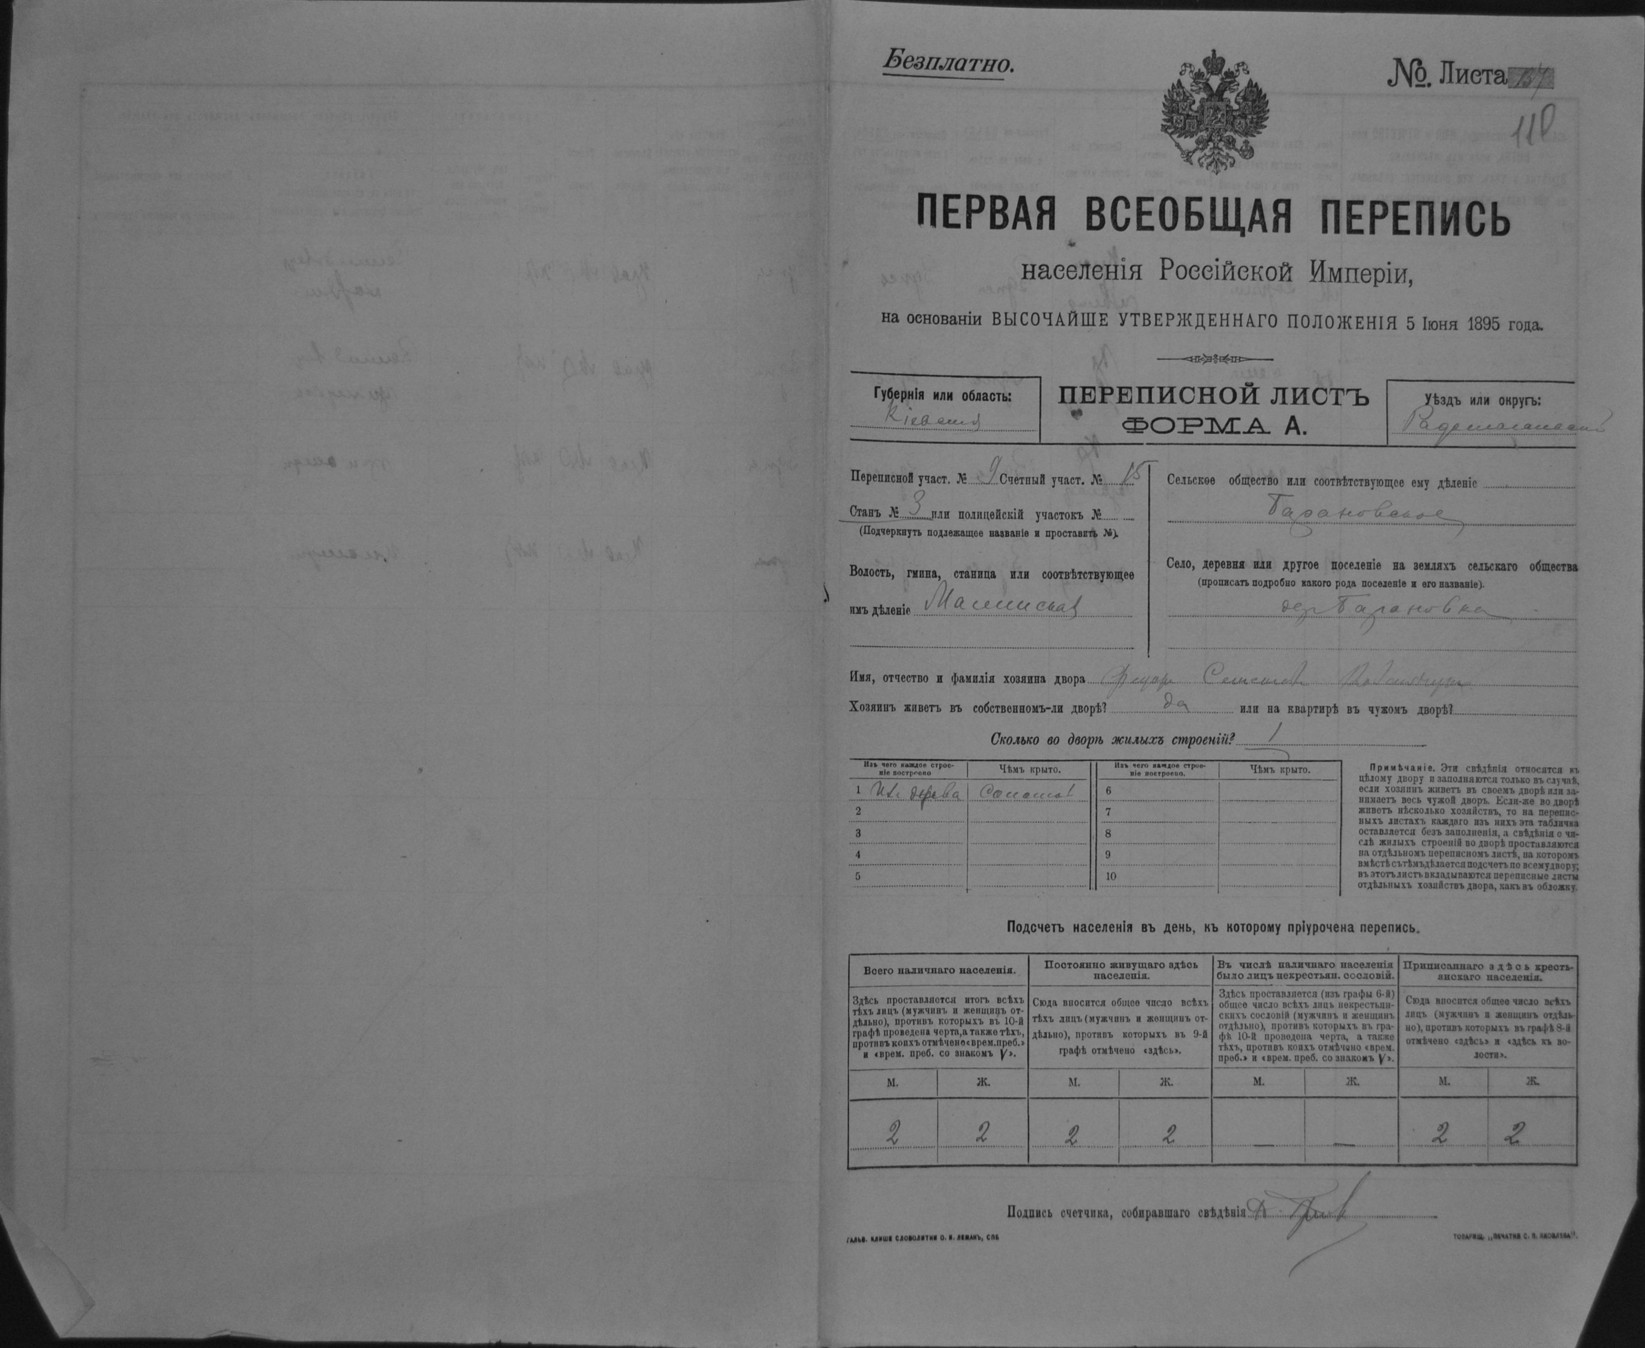 Безплатно.
№ Листа
118
ПЕРВАЯ ВСЕОБЩАЯ ПЕРЕПИСЬ
населенія Россійской Имперіи,
на основаніи ВЫСОЧАЙШЕ УТВЕРЖДЕННАГО ПОЛОЖЕНІЯ 5 Іюня 1895 года.
Губернія или область:
Кіевская
ПЕРЕПИСНОЙ ЛИСТЪ
ФОРМА А.
Уѣздъ или округъ:
Радомысльскій
Переписной участ. № 9 Счетный участ. № 15
Станъ № 3 или полицейскій участокъ №
(Подчеркнуть подлежащее названіе и проставить №).
Волость, гмина, станица или соотвѣтствующее
имъ дѣленіе Малинская
Сельское общество или соотвѣтствующее ему дѣленіе
Барановское
Село, деревня или другое поселеніе на земляхъ сельскаго общества
(прописать подробно какого рода поселеніе и его названіе).
дер Барановка
Имя, отчество и фамилія хозяина двора
Хозяинъ живетъ въ собственномъ-ли дворѣ? да или на квартирѣ въ чужомъ дворѣ?
Сколько во дворѣ жилыхъ строеній? 1
Изъ чего каждое строе-
ніе построено
Чѣмъ крыто.
Изъ чего каждое строе-
ніе построено.
Чѣмъ крыто.
1 Изъ дерева Соломой
2
3
4
5
6
7
8
9
10
Примѣчаніе. Эти свѣдѣнія относятся къ
цѣлому двору и заполняются только въ случаѣ,
если хозяинъ живетъ въ своемъ дворѣ или за-
нимаетъ весь чужой дворъ. Если-же во дворѣ
живетъ нѣсколько хозяйствъ, то на перепис-
ныхъ листахъ каждаго изъ нихъ эта табличка
оставляется безъ заполненія, а свѣдѣнія о чи-
слѣ жилыхъ строеній во дворѣ проставляются
на отдѣльномъ переписномъ листѣ, на которомъ
вмѣстѣ съ тѣмъ дѣлается подсчетъ по всему двору;
въ этотъ листъ вкладываются переписные листы
отдѣльныхъ хозяйствъ двора, какъ въ обложку.
Подсчетъ населенія въ день, къ которому пріурочена перепись.
Всего наличнаго населенія.
Здѣсь проставляется итогъ всѣхъ
тѣхъ лицъ (мужчинъ и женщинъ от-
дѣльно), противъ которыхъ въ 10-й
графѣ проведена черта, а также тѣхъ,
противъ коихъ отмѣчено «врем. преб.»
и «врем. преб. со знакомъ V».
Постоянно живущаго здѣсь
населенія.
Сюда вносится общее число всѣхъ
тѣхъ лицъ (мужчинъ и женщинъ от-
дѣльно), противъ которыхъ въ 9-й
графѣ отмѣчено «здѣсь».
Въ числѣ наличнаго населенія
было лицъ некрестьян. сословій.
Здѣсь проставляется (изъ графы 6-й)
общее число всѣхъ лицъ некрестьян-
скихъ сословій (мужчинъ и женщинъ
отдѣльно), противъ которыхъ въ гра-
фѣ 10-й проведена черта, а также
тѣхъ, противъ коихъ отмѣчено «врем.
преб.» и «врем. преб. со знакомъ V».
Приписаннаго здѣсь кресть-
янскаго населенія.
Сюда вносится общее число всѣхъ
лицъ (мужчинъ и женщинъ отдѣль-
но), противъ которыхъ въ графѣ 8-й
отмѣчено «здѣсь» и «здѣсь въ во-
лости».
М. Ж. М. Ж. М. Ж. М. Ж.
2 2 2 2 — — 2 2
Подпись счетчика, собиравшаго свѣдѣнія
ГАЛЬВ. КЛИШЕ СЛОВОЛИТНИ О. И. ЛЕМАНЪ, СПБ
ТОВАРИЩ. „ПЕЧАТНЯ С. П. ЯКОВЛЕВА".